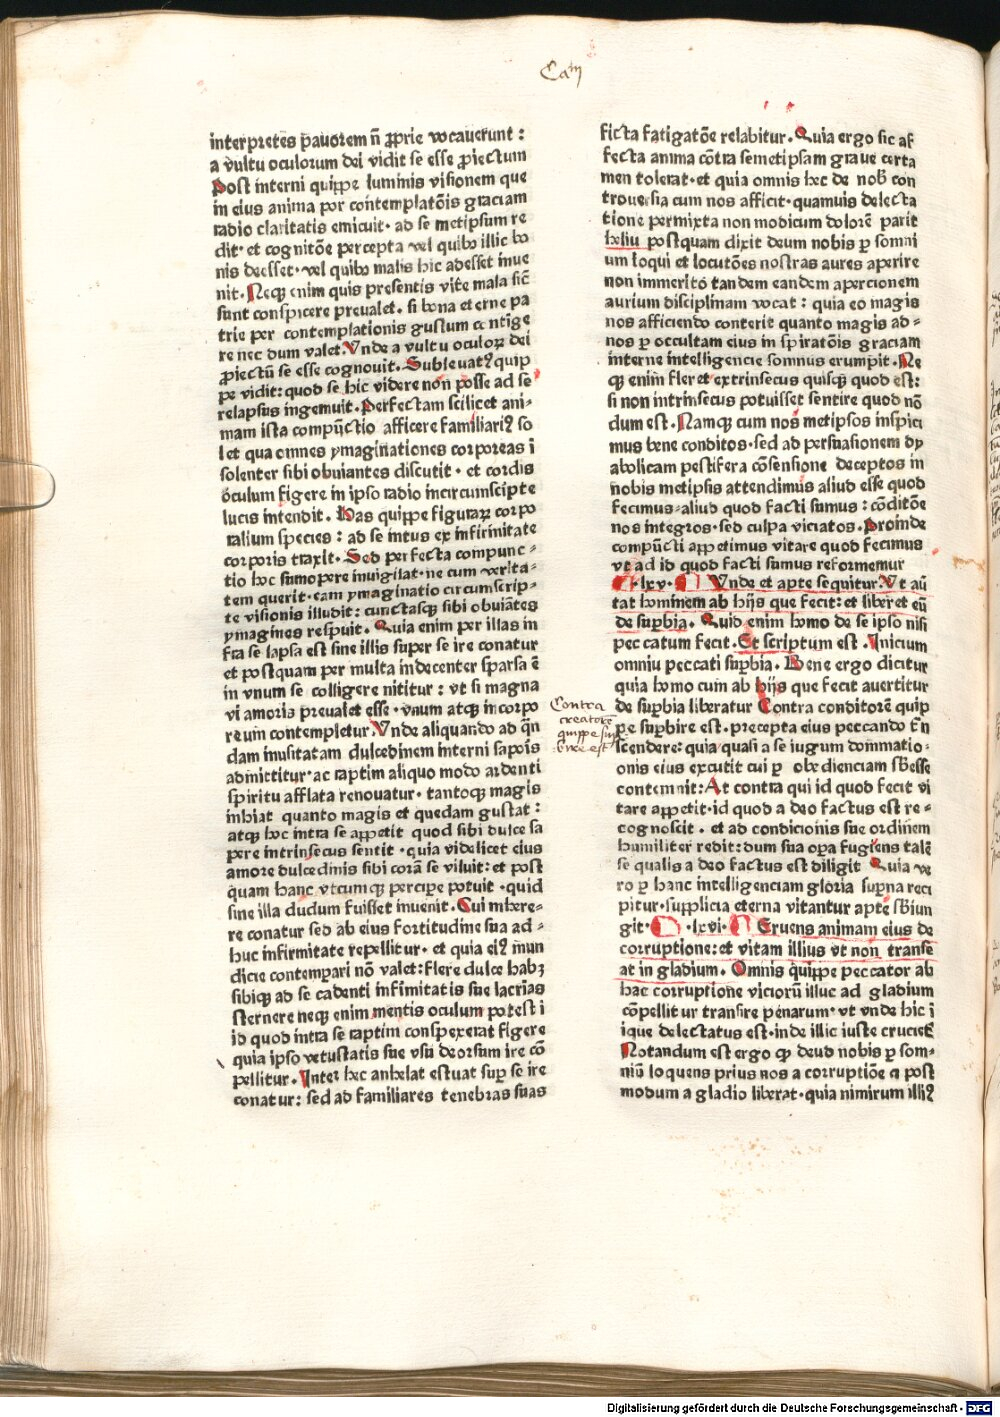 Ca m
interpretes p̄auorem n̄ ꝓprie vocauerunt :
a vultu oculorum dei vidit se esse ꝓiectum
Post interni quippe luminis visionem que
in eius anima per contemplatōis graciam
radio claritatis emicuit· ad se metipsum re
dit· et cognitōe percepta vel quibꝰ illic bo
nis deesset· vel quibꝰ malis hic adesset inue
nit. Neqꝫ enim quis presentis vite mala sic̄
sunt conspicere preualet. si bona eterne pa
trie per contemplationis gustum contige
re nec dum valet. Vnde a vultu oculoꝝ dei
ꝓiectū se esse cognouit. Subleuatꝰ quip
pe vidit: quod se hic videre non posse ad se
relapsus ingemuit. Perfectam scilicet ani-
mam ista compūctio afficere familiariꝰ so
let qua omnes ymaginationes corporeas ī
solenter sibi obuiantes discutit · et cordis
oculum figere in ipso radio incircumscripte
lucis intendit. Has quippe figuraꝝ corpo
ralium species : ad se intus ex infirmitate
corporis traxit. Sed perfecta compunc-
tio hoc summopere inuigilat· ne cum verita-
tem querit· eam ymaginatio circumscrip-
te visionis illudit: cunctasqꝫ sibi obuiātes
ymagines respuit. Quia enim per illas in
fra se lapsa est sine illis super se ire conatur
et postquam per multa indecenter sparsa ē
in vnum se colligere nititur : vt si magna
vi amoris preualet esse · vnum atqꝫ incorpo
reum contempletur. Vnde aliquando ad qn̄
dam inusitatam dulcedinem interni saporis
admittitur· ac raptim aliquo modo ardenti
spiritu afflata renouatur· tantoqꝫ magis
inhiat quanto magis et quedam gustat :
atqꝫ hoc intra se appetit quod sibi dulce sa
pere intrinsecus sentit · quia videlicet eius
amore dulcedinis sibi corā se viluit: et post
quam hanc vtcumqꝫ percipe potuit · quid
sine illa dudum fuisset inuenit. Cui inhere-
re conatur sed ab eius fortitudine sua ad-
huc infirmitate repellitur· et quia eiꝰ mun
dicie contempari nō valet: flere dulce habꝫ
sibiqꝫ ad se cadenti infirmitatis sue lacrias
sternere neqꝫ enim mentis oculum potest ī
id quod intra se raptim conspexerat figere
quia ipso vetustatis sue vsu deorsum ire cō
pellitur. Inter hec anhelat estuat sup se ire
conatur: sed ad familiares tenebras suas
ficta fatigatōe relabitur. Quia ergo sic af
fecta anima cōtra semetipsam graue certa
men tolerat· et quia omnis hec de nobꝰ con
trouersia cum nos afficit· quamuis delecta
tione permixta non modicum dolorē parit
heliu postquam dixit deum nobis ꝑ somni
um loqui et locutōes nostras aures aperire
non immerito tandem eandem apercionem
aurium disciplinam vocat : quia eo magis
nos afficiendo conterit quanto magis ad-
nos ꝑ occultam eius inspiratōis graciam
interne intelligencie somnus erumpit. Ne
qꝫ enim fleret extrinsecus quisqꝫ quod est:
si non intrinsecus potuisset sentire quod nō
dum est. Namqꝫ cum nos metipsos inspici
mus bene conditos· sed ad persuasionem dy
abolicam pestifera cōsensione deceptos in
nobis metipsis attendimus aliud esse quod
fecimus· aliud quod facti sumus : cōditōe
nos integros· sed culpa viciatos. Proinde
compūcti appetimus vitare quod fecimus
vt ad id quod facti sumus reformemur
·lxv· Vnde et apte sequitur. Vt au
tat hominem ab hijs que fecit: et liberet eū
de supbia. Quid enim homo de se ipso nisi
peccatum fecit. Et scriptum est. Inicium
omniu peccati supbia. Bene ergo dicitur
quia homo cum ab hijs que fecit auertitur
de supbia liberatur Contra conditorē quip
pe supbire est· precepta eius peccando t̄n
scendere: quia quasi a se iugum dominatio-
onis eius excutit cui ꝑ obedienciam sbesse
contemnit: At contra qui id quod fecit vi
tare appetit· id quod a deo factus est re-
cognoscit . et ad condicionis sue ordinem
humiliter redit: dum sua opa fugiens talē
se qualis a deo factus est diligit Quia ve
ro ꝑ hanc intelligenciam gloria supna reci
pitur· supplicia eterna vitantur apte sbiun
git· ·lxvi· Eruens animam eius de
corruptione: et vitam illius vt non transe
at in gladium. Omnis quippe peccator ab
hac corruptione vicioru illuc ad gladium
cōpellitur transire penarum· vt vnde hic ī
ique delectatus est· inde illic iuste crucietꝰ
Notandum est ergo ꝙ deus nobis ꝑ som-
niū loquens prius nos a corruptiōe a post
modum a gladio liberat· quia nimirum illiꝰ
Contra
creatorē
quippe sup
bire est
Digitalisierung gefördert durch die Deutsche Forschungsgemeinschaft - DFG